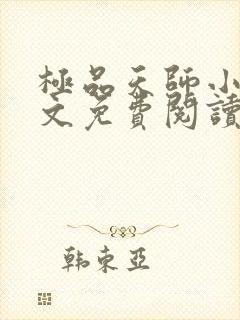 極品天師小
文免費閱讀
韩東亚